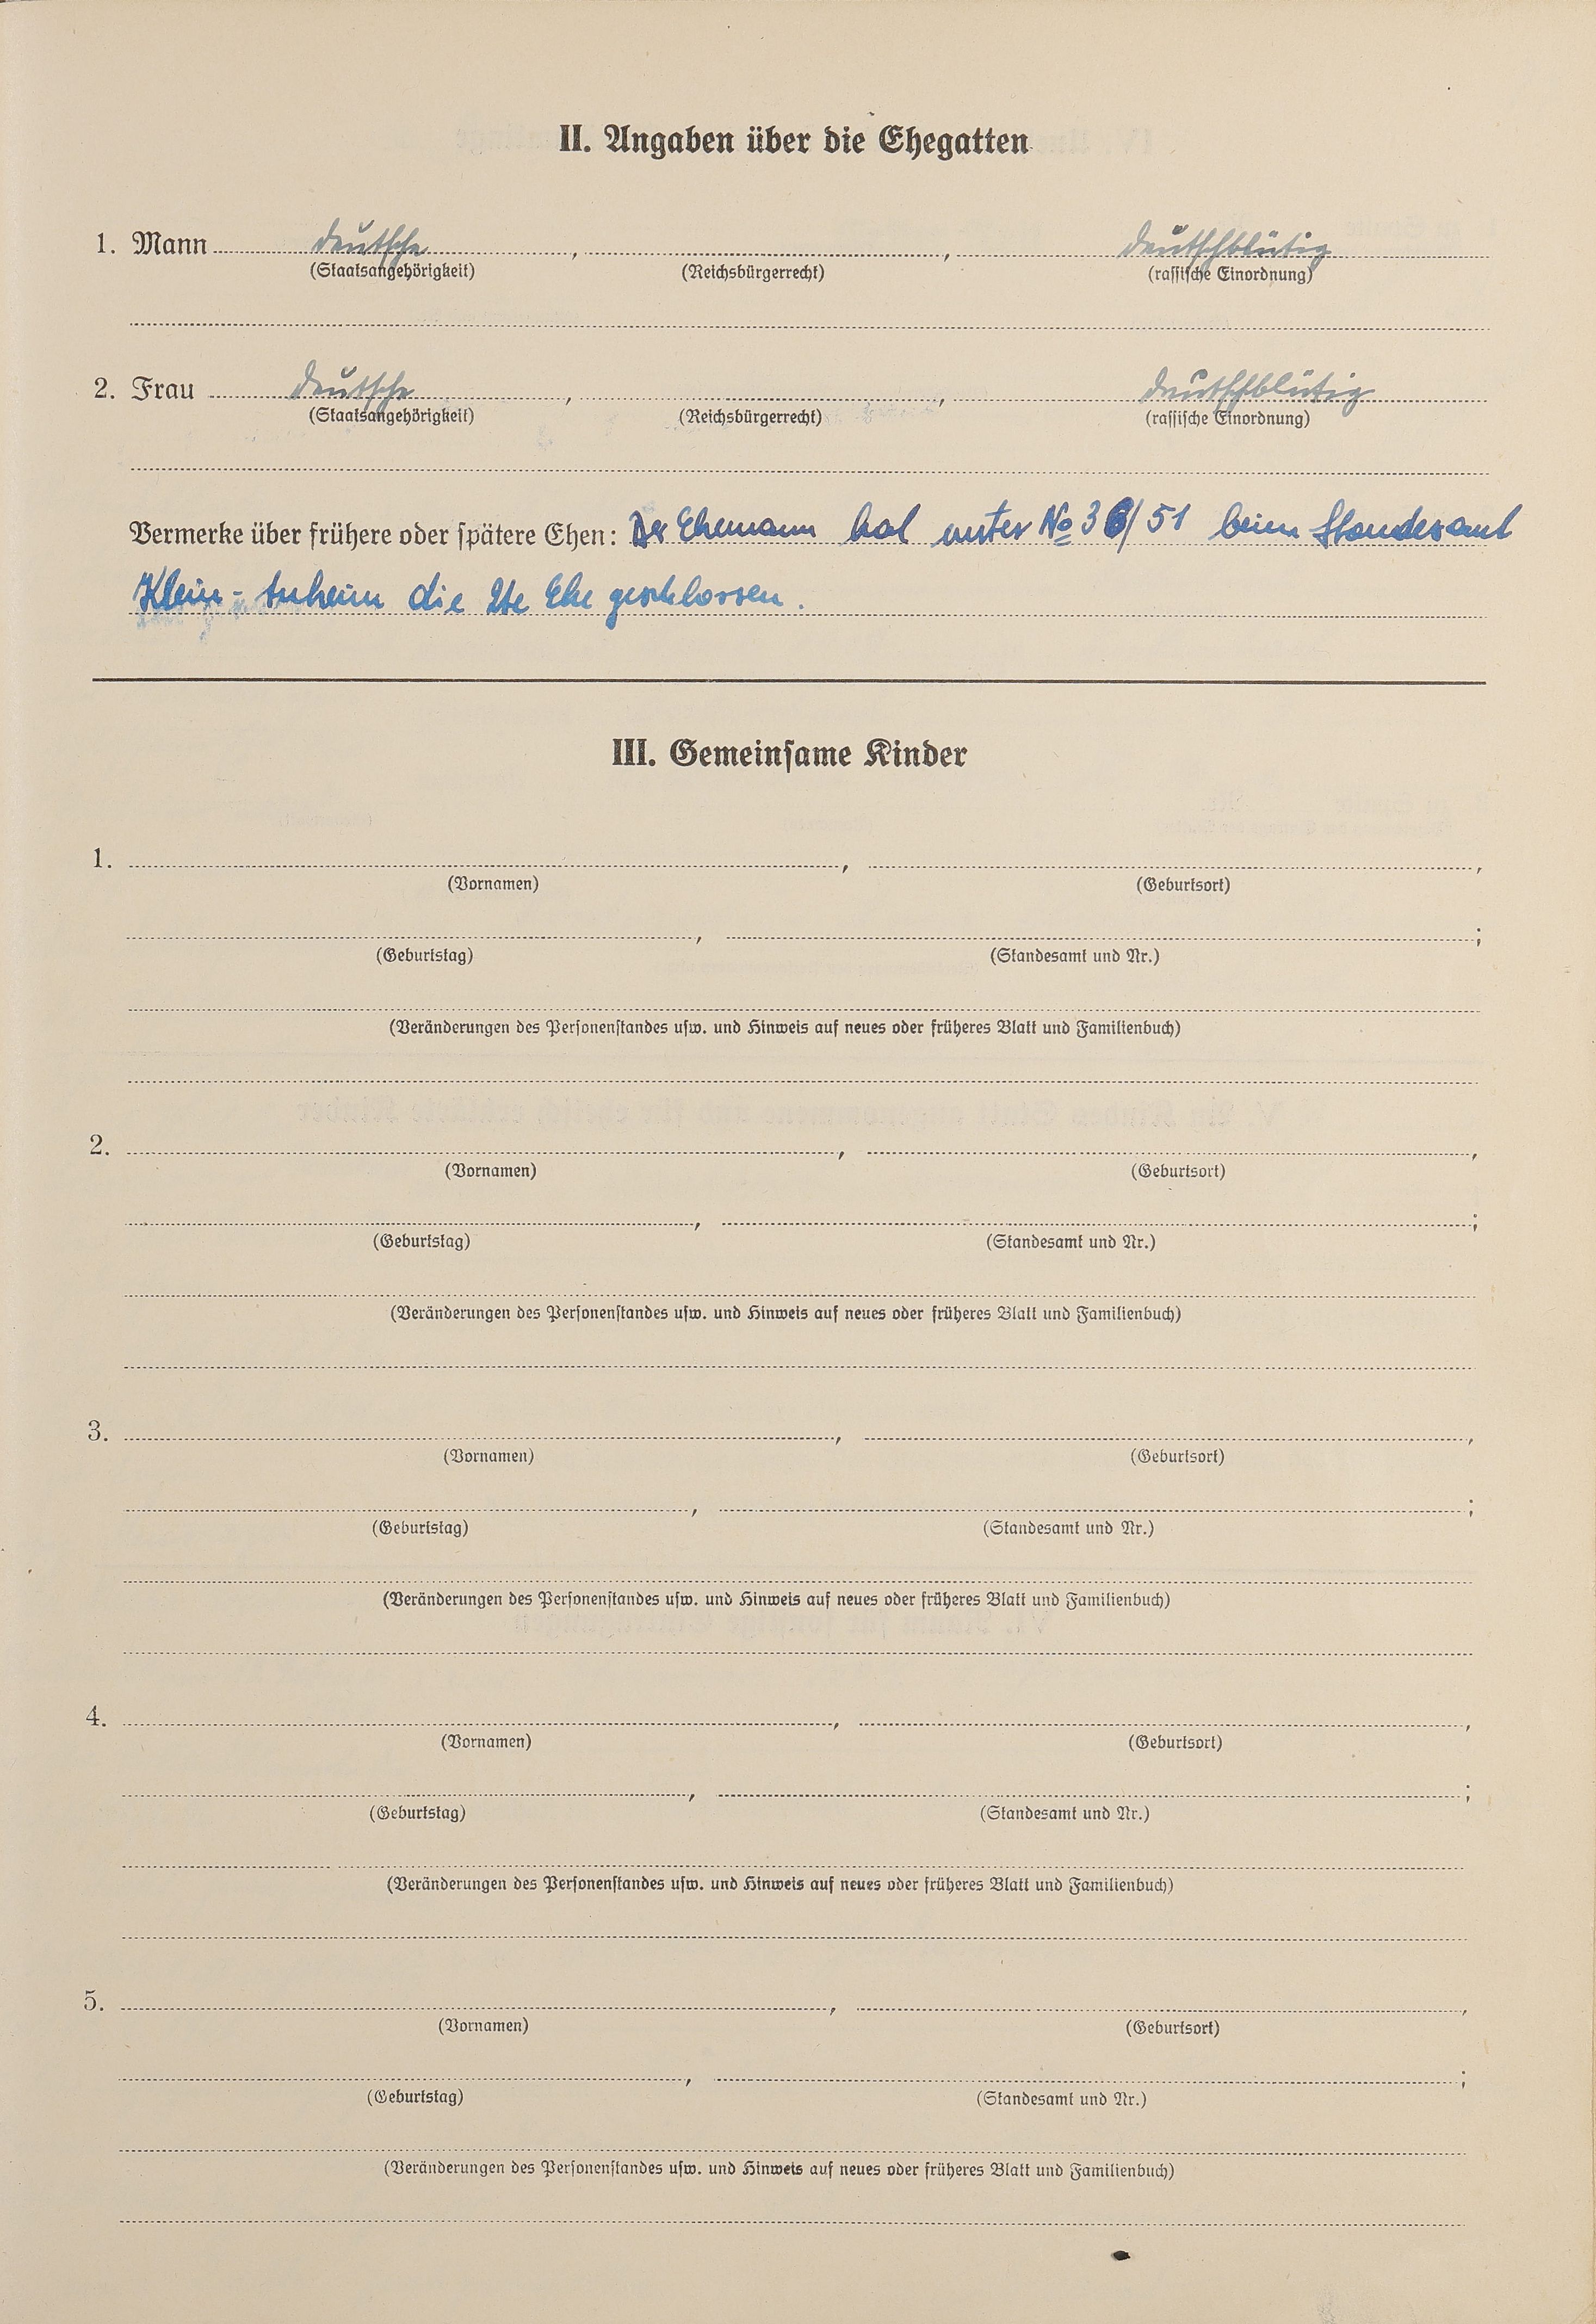 II. Angaben über die Ehegatten
1. Mann deutsche, , deutschblütig
(Staatsangehörigkeit) (Reichsbürgerrecht) (rassische Einordnung)
2. Frau deutsche, , deutschblütig
(Staatsangehörigkeit) (Reichsbürgerrecht) (rassische Einordnung)
Vermerke über frühere oder spätere Ehen: Der Ehemann hat unter No 36/51 beim Standesamt
Klein-Auheim die 2te Ehe geschlossen.
III. Gemeinsame Kinder
1. , ,
(Vornamen) (Geburtsort)
, ;
(Geburtstag) (Standesamt und Nr.)
(Veränderungen des Personenstandes usw. und Hinweis auf neues oder früheres Blatt und Familienbuch)
2. , ,
(Vornamen) (Geburtsort)
, ;
(Geburtstag) (Standesamt und Nr.)
(Veränderungen des Personenstandes usw. und Hinweis auf neues oder früheres Blatt und Familienbuch)
3. , ,
(Vornamen) (Geburtsort)
, ;
(Geburtstag) (Standesamt und Nr.)
(Veränderungen des Personenstandes usw. und Hinweis auf neues oder früheres Blatt und Familienbuch)
4. , ,
(Vornamen) (Geburtsort)
, ;
(Geburtstag) (Standesamt und Nr.)
(Veränderungen des Personenstandes usw. und Hinweis auf neues oder früheres Blatt und Familienbuch)
5. , ,
(Vornamen) (Geburtsort)
, ;
(Geburtstag) (Standesamt und Nr.)
(Veränderungen des Personenstandes usw. und Hinweis auf neues oder früheres Blatt und Familienbuch)